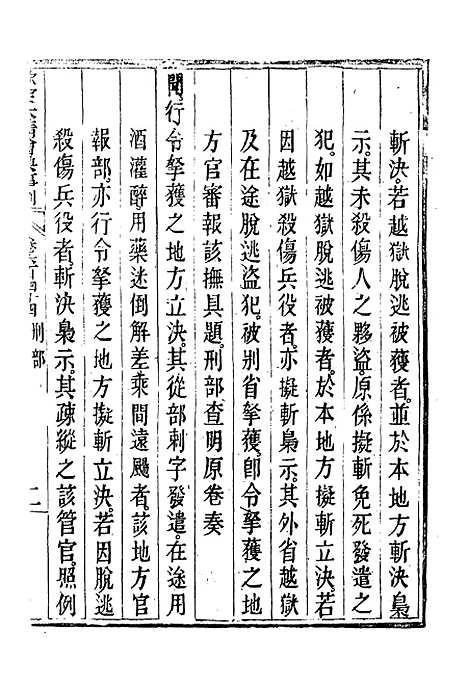 斬決。若越獄脫逃被獲者。並於本地方斬決梟
示。其未殺傷人之夥盜。原係擬斬免死發遣之
犯。如越獄脫逃被獲者。於本地方擬斬立決。若
因越獄殺傷兵役者。亦擬斬梟示。其外省越獄
及在途脫逃盜犯。被别省拏獲。卽令拏獲之地
方官審報該撫具題。刑部查明原卷奏
聞。行令拏獲之地方立決。其從部刺字發遣。在途用
酒灌醉。用藥迷倒解差。乘間遠颺者。該地方官
報部。亦行令拏獲之地方擬斬立決。若因脫逃
殺傷兵役者。斬決梟示。其疎縱之該管官。照例
刑部